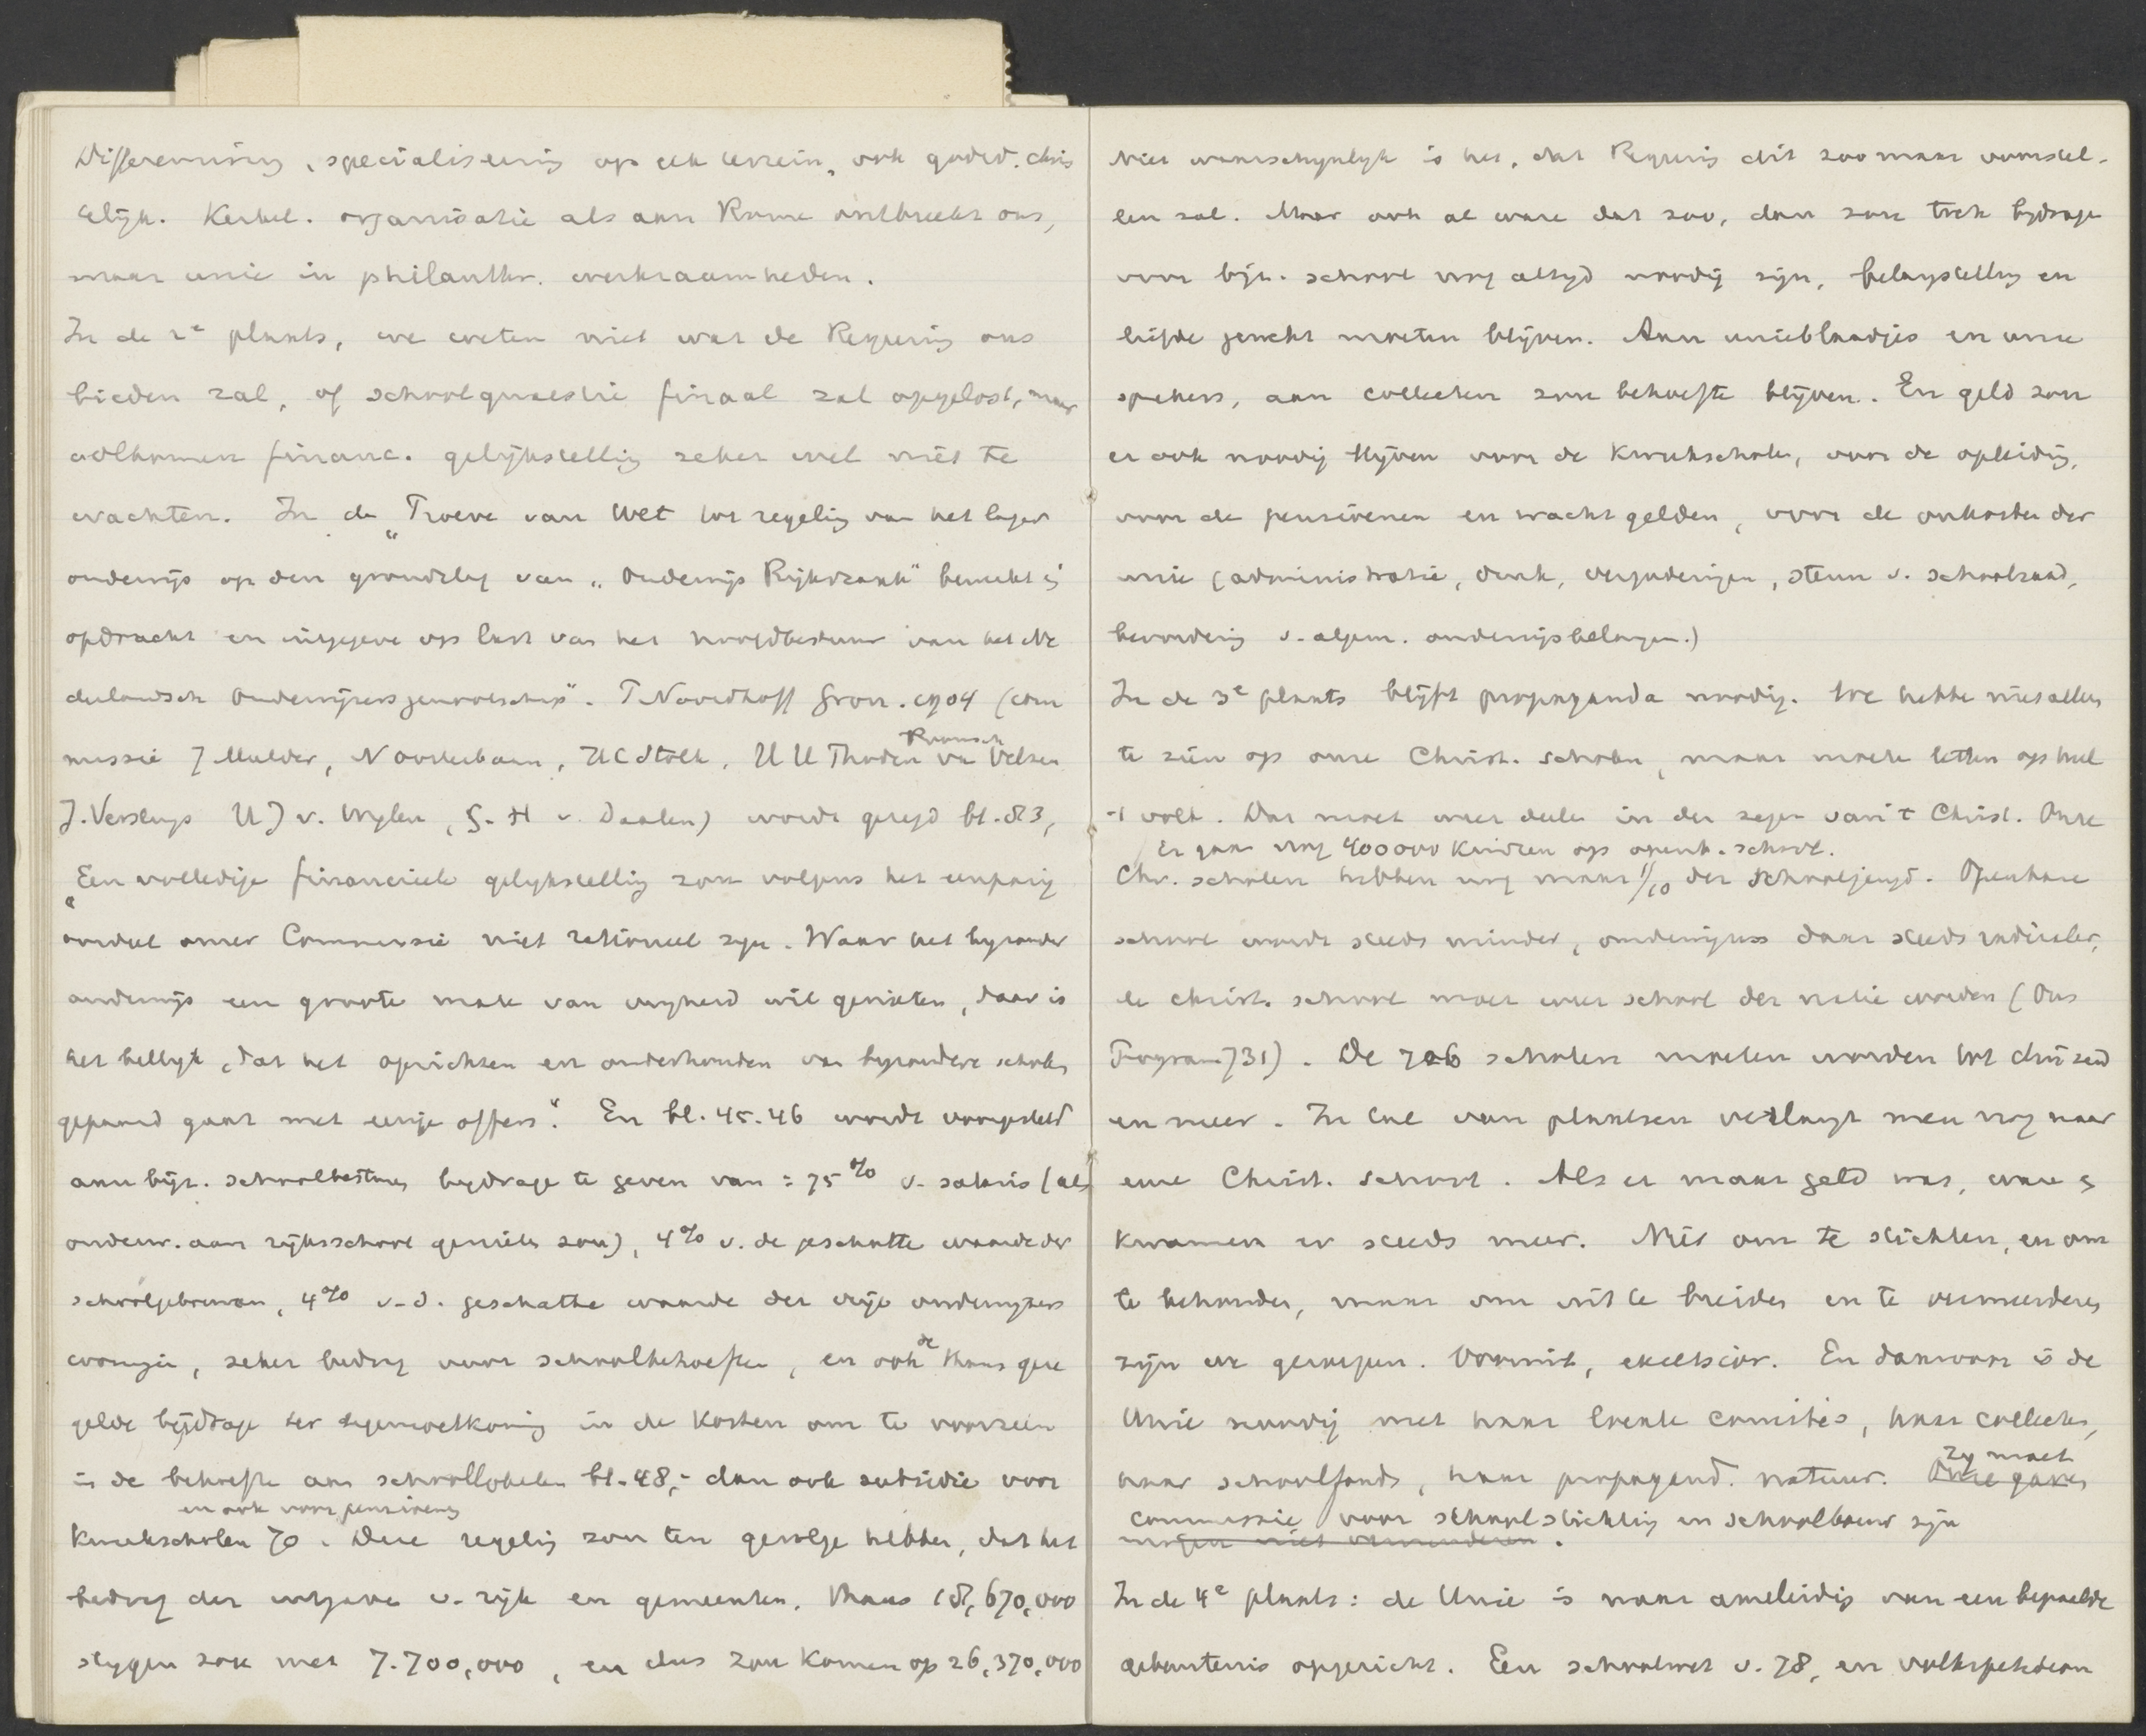 Differeering, specialiseering op elk terrein, ook godsd. chris
telijk. Kerkel. organisatie als aan Rome ontbreekt ons,
maar unie in philanthr. werkzaamheden.
In de 2e plaats, we weten niet wat de Regeering ons
bieden zal, of schoolquaestie finaal zal opgelost, maar
volkomen financ. gelijkstelling zeker wel niet te
wachten. In de „Proeve van Wet tot regeling van het lager
onderwijs op den grondslag van „Onderwijs Rijkszaak" bewerkt in
opdracht en uitgegeve op last van het hoofdbestuur van het Ne
derlandsch Onderwijzersgenootschap". P Noordhoff Gron. 1904 (com
missie J Mulder, N Oosterbaan, H C Stolk, H U Thoden van Velsen
J. Versluys H J v. Wylen, G. H v. Daalen) wordt gezegd bl. 83,
„Een volledige financieele gelijkstelling zou volgens het eenparig
oordeel onzer Commissie niet rationeel zijn. Waar het byzonder
onderwijs een groote mate van vryheid wil genieten, daar is
het billyk, dat het oprichten en onderhouden van byzondere scholen
gepaard gaat met eenige offers." En bl. 45.46 wordt voorgesteld
aan bijz. schoolbesturen bydrage te geven van = 75% v. salaris (als
onderw. aan rijksschool genieten zou), 4% v. de geschatte waarde der
schoolgebouwen, 4% v.d. geschatte waarde der vrije onderwyzers
woningen, zeker bedrag voor schoolbehoeften, en ook de thans gere
gelde bijdrage ter tegemoetkoming in de kosten om te voorzien
in de behoefte aan schoollokalen bl. 48,- dan ook subsidie voor
en ook voor pensioenen
Kweekscholen 70. Deze regeling zou ten gevolge hebben, dat het
bedrag der uitgaven v. rijk en gemeenten, thans 18,670,000
stygen zou met 7.700,000, en dus zou komen op 26,370,000
Niet waarschynlyk is het, dat Regeering dit zoo maar voorstel-
len zal. Maar ook al ware dat zoo, dan zou toch bydrage
voor bijz. school nog altyd noodig zijn, belangstelling en
liefde gewekt moeten blijven. Aan unieblaadjes en unie
sprekers, aan collecten zou behoefte blijven. En geld zou
er ook noodig blijven voor de kweekscholen, voor de opleiding,
voor de pensioenen en wachtgelden, voor de onkosten der
unie (administratie, druk, vergaderingen, steun v. schoolraad,
bevordering v. algem. onderwijsbelangen.)
In de 3e plaats blijft propaganda noodig. We hebbe niet alleen
te zien op onze Christ. scholen, maar moete letten op heel
't volk. Dat moet meer deelen in den zegen van 't Christ. Onze
Er gaan nog 400000 kindren op openb. school.
Chr. scholen hebben nog maar 1/10 der schooljeugd. Openbare
school wordt steeds minder, onderwijzers daar steeds radicaler,
de christ. school moet weer school der natie worden (Ons
Program 731). De 706 scholen moeten worden tot duizend
en meer. In tal van plaatsen verlangt men nog naar
eene Christ. school. Als er maar geld was, ware &
kwamen er steeds meer. Niet om te stichten, en om
te behouden, maar om uit te breiden en te vermeerderen
zijn we geroepen. Vooruit, excelsior. En daarvoor is de
Unie noodig met haar locale comité's, haar collecten,
haar schoolfonds, haar propagand. natuur. Onze gaven Zy moet
commissie voor schoolstichting en schoolbouw zijn
mogen niet verminderen.
In de 4e plaats: de Unie is naar aanleiding van een bepaelde
gebeurtenis opgericht. Een schoolwet v. 78, en volkspetition